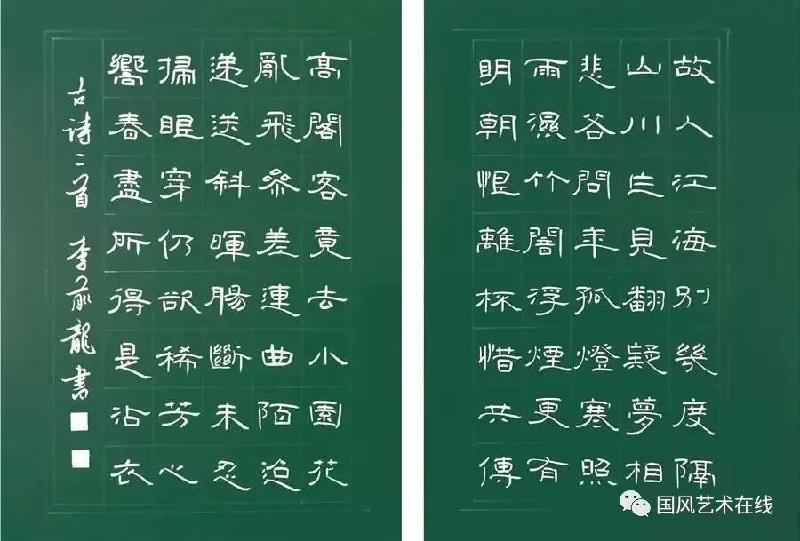 故人江海別幾度隔
山川乍見翻疑夢相
悲各問年孤燈寒照
雨濕竹闇浮煙更有
明朝恨離杯惜共傳
高閣客竟去小園花
亂飛參差連曲陌迢
遞送斜暉腸斷未忍
掃眼穿仍欲稀芳心
嚮春盡所得是沾衣
古诗二首 李俞龍書
国风艺术在线